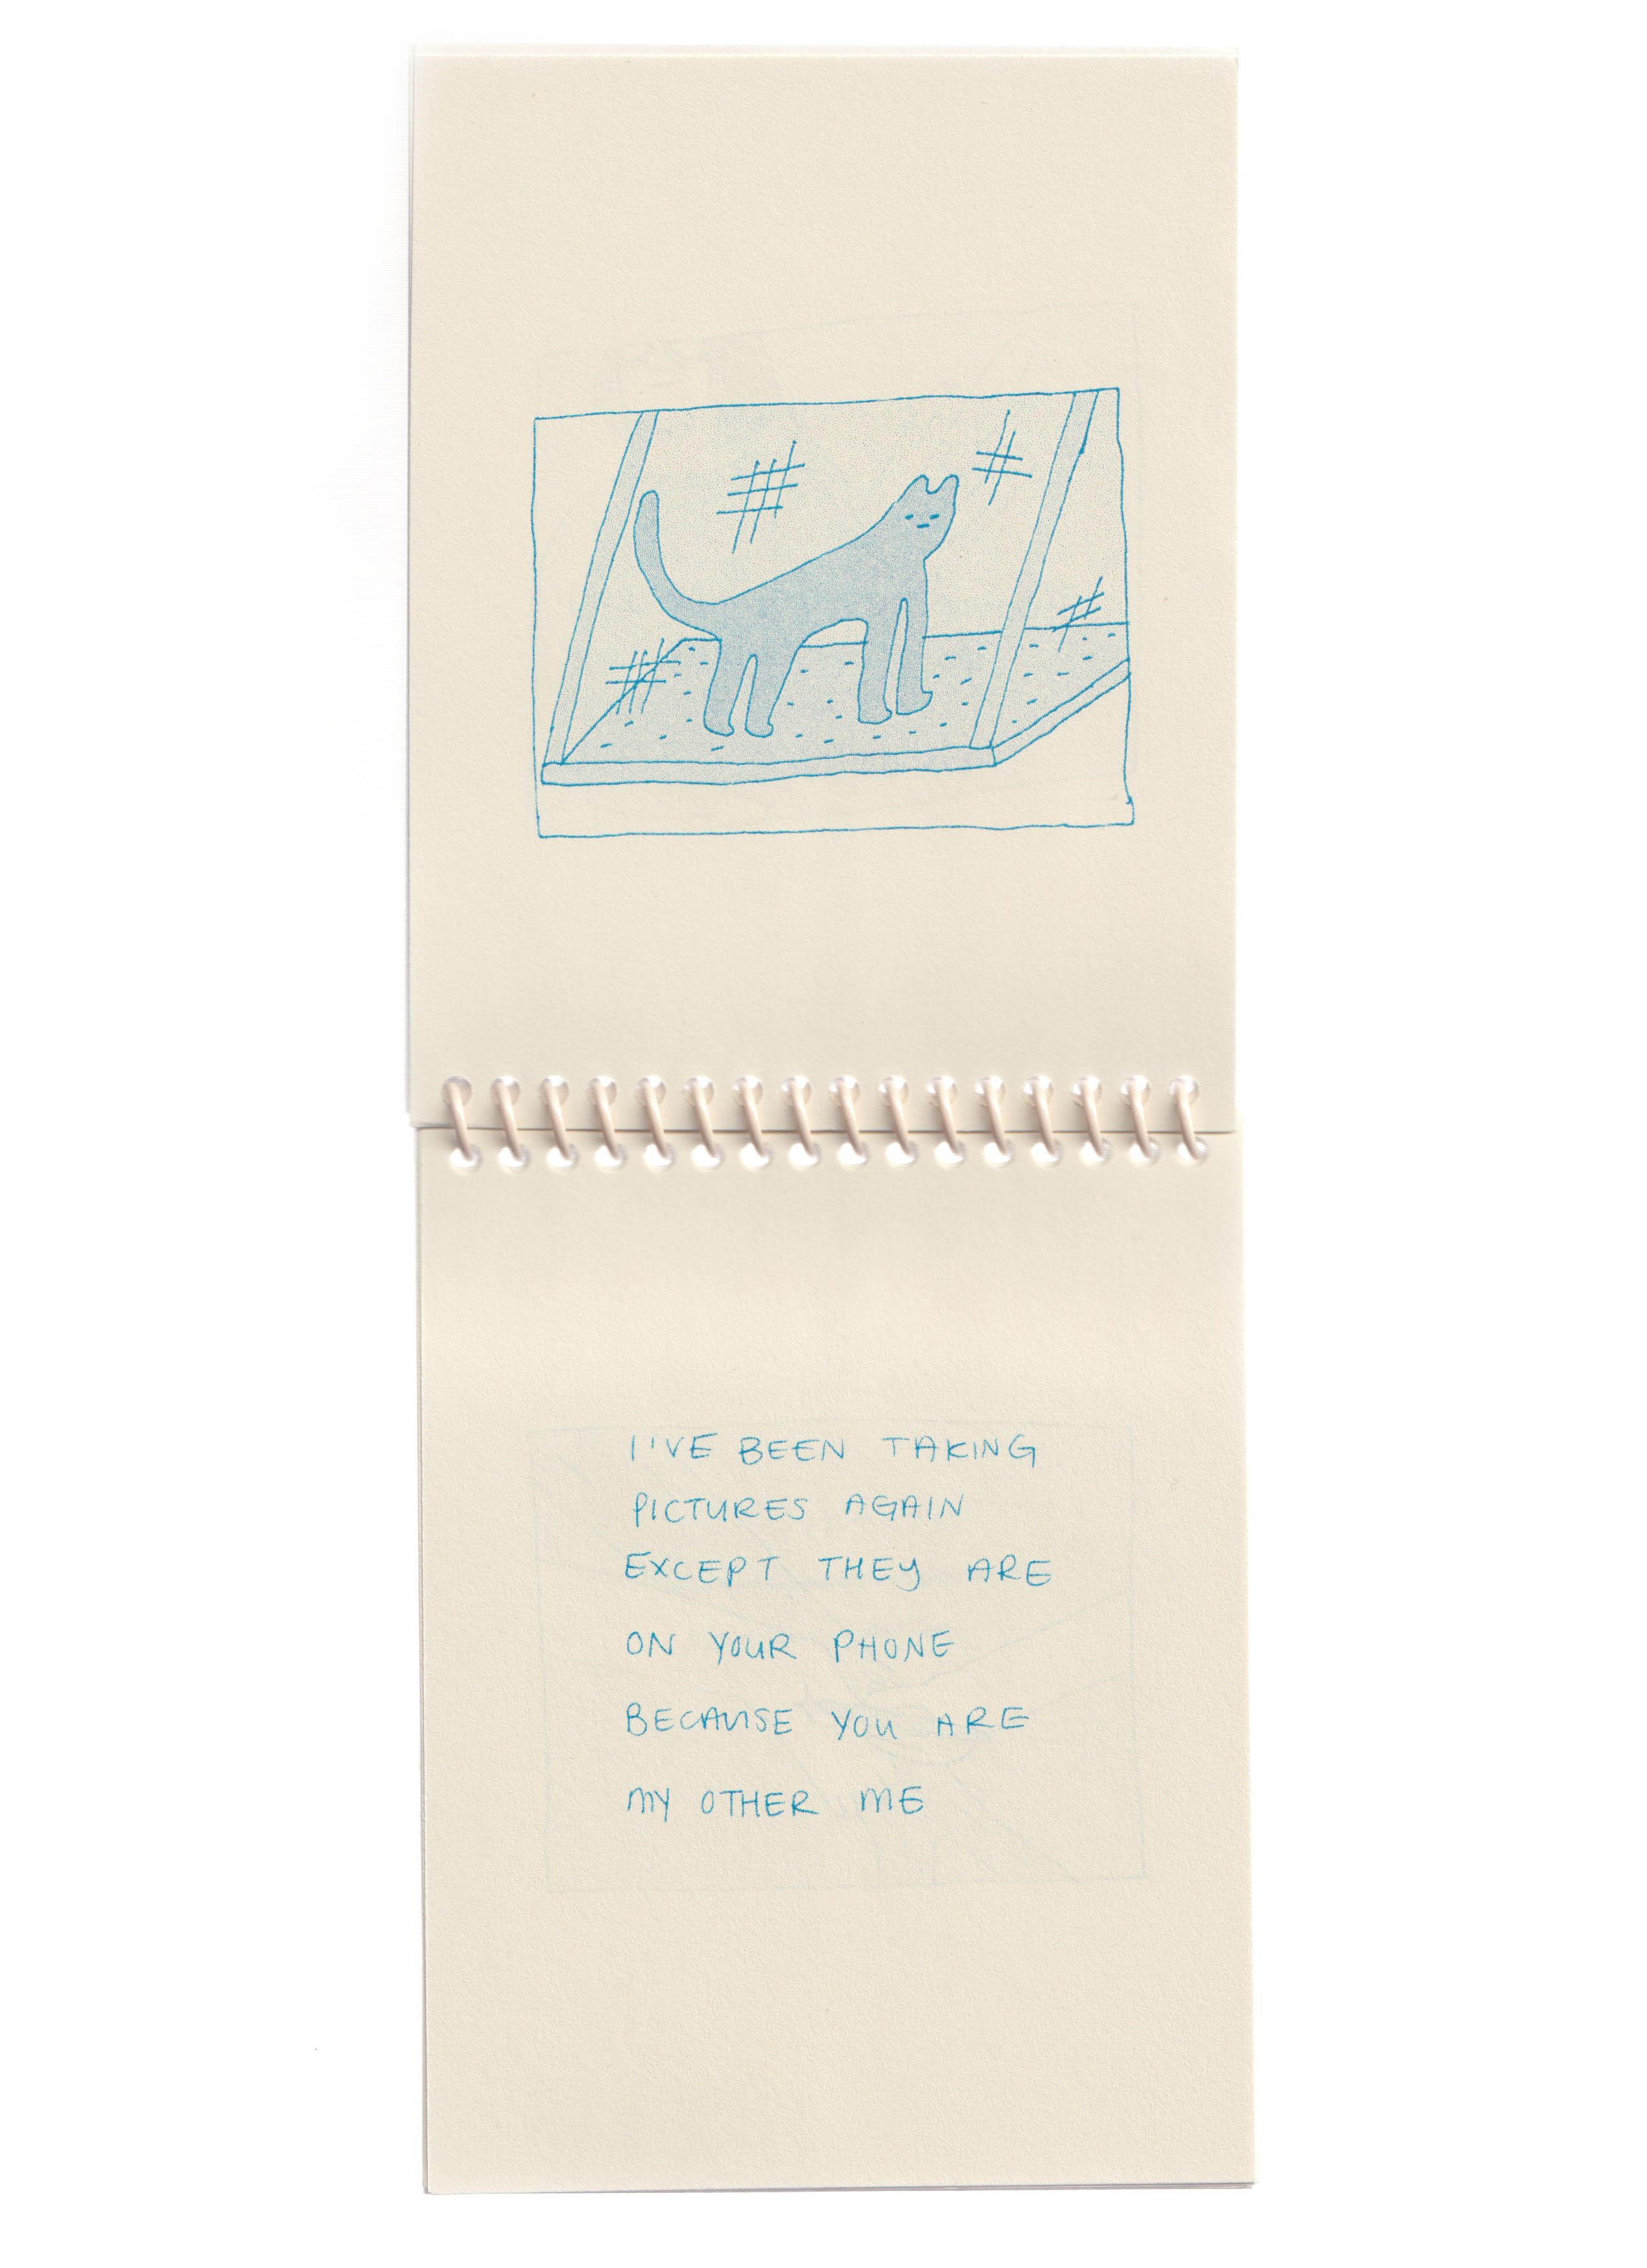 I'VE BEEN TAKING
PICTURES AGAIN
EXCEPT THEY ARE
ON YOUR PHONE
BECAUSE YOU ARE
MY OTHER ME